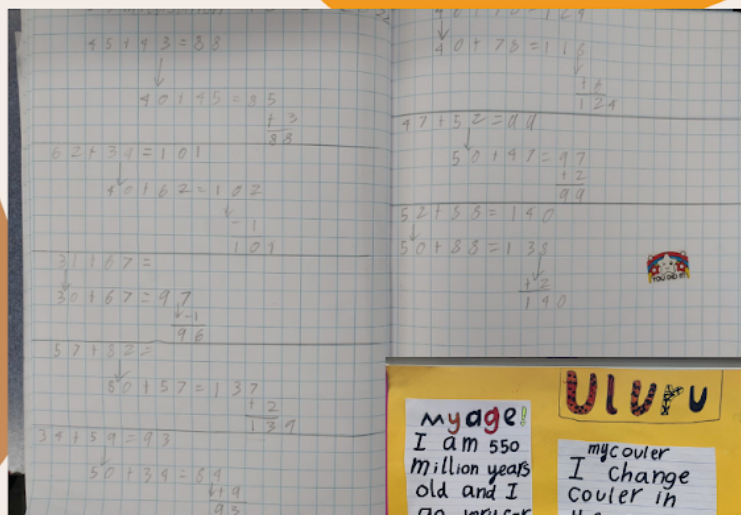 45+43=88
40+45=85
+3
88
62+39=101
40+62=102
-1
101
31+67=
30+67=97
-1
96
57+82=
80+57=137
+2
139
34+59=93
50+34=84
+9
93
40+78=118
+6
124
47+52=99
50+47=97
+2
99
52+88=140
50+88=138
+2
140
YOU DID IT!
my age!
I am 550
million years
old and I
Uluru
my couler
I change
couler in